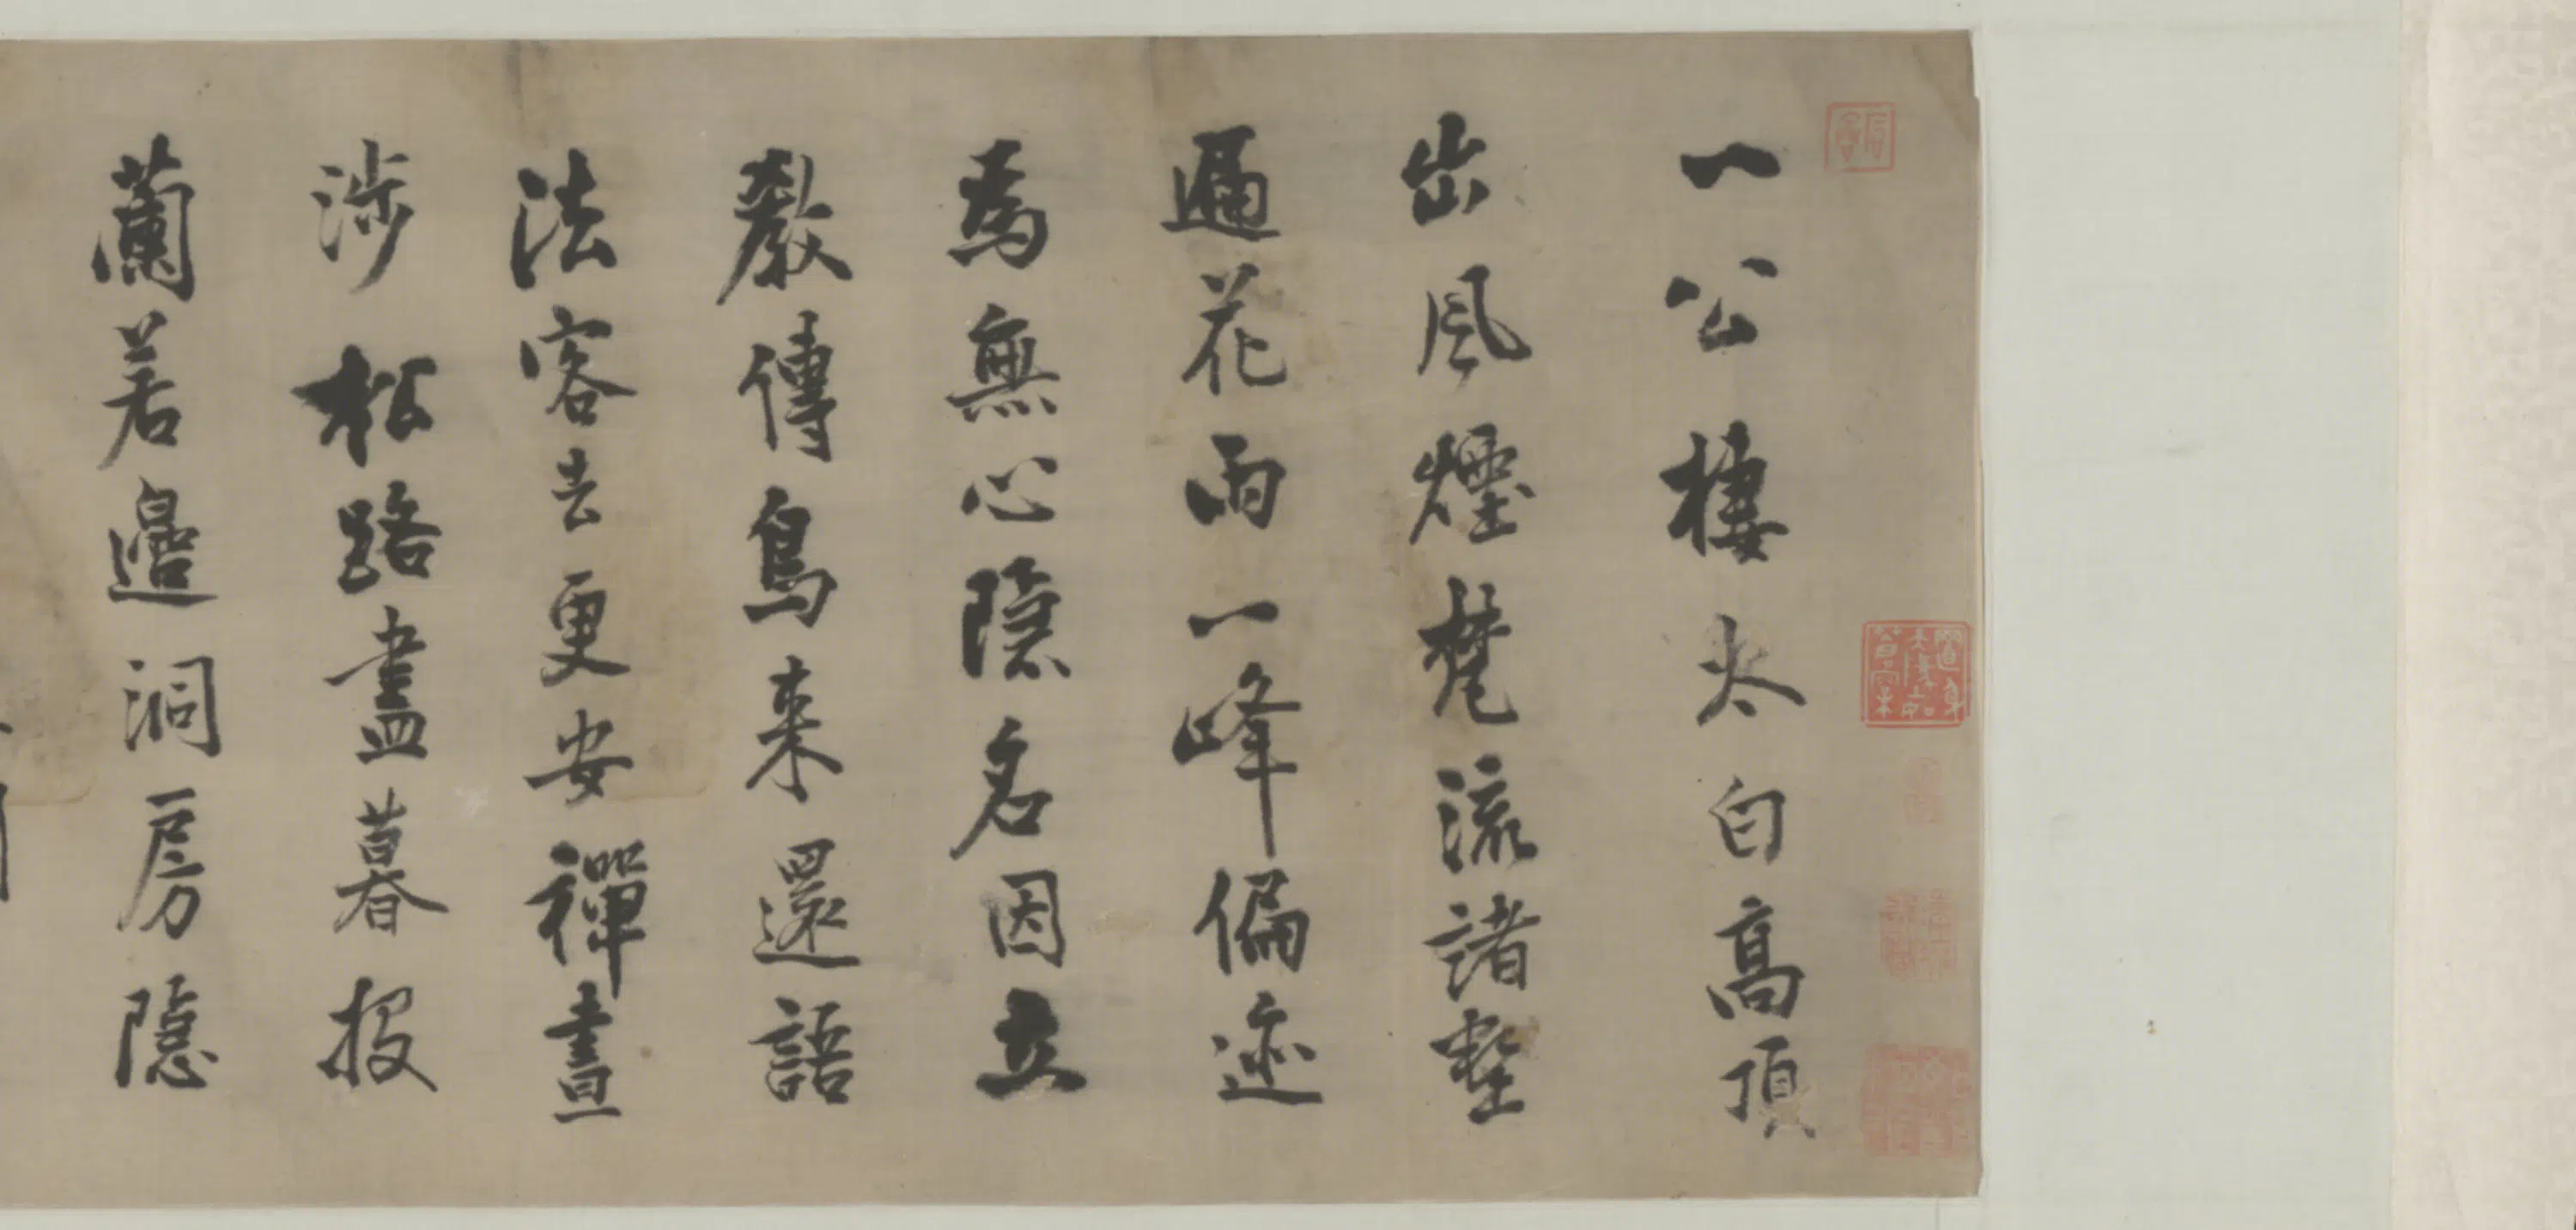 一公棲太白高頂
出風煙梵流諸壑
遍花雨一峰偏迹
為無心隱名因立
教傳鳥來還語
法客去更安禪晝
涉松路盡暮投
蘭若邊洞房隱